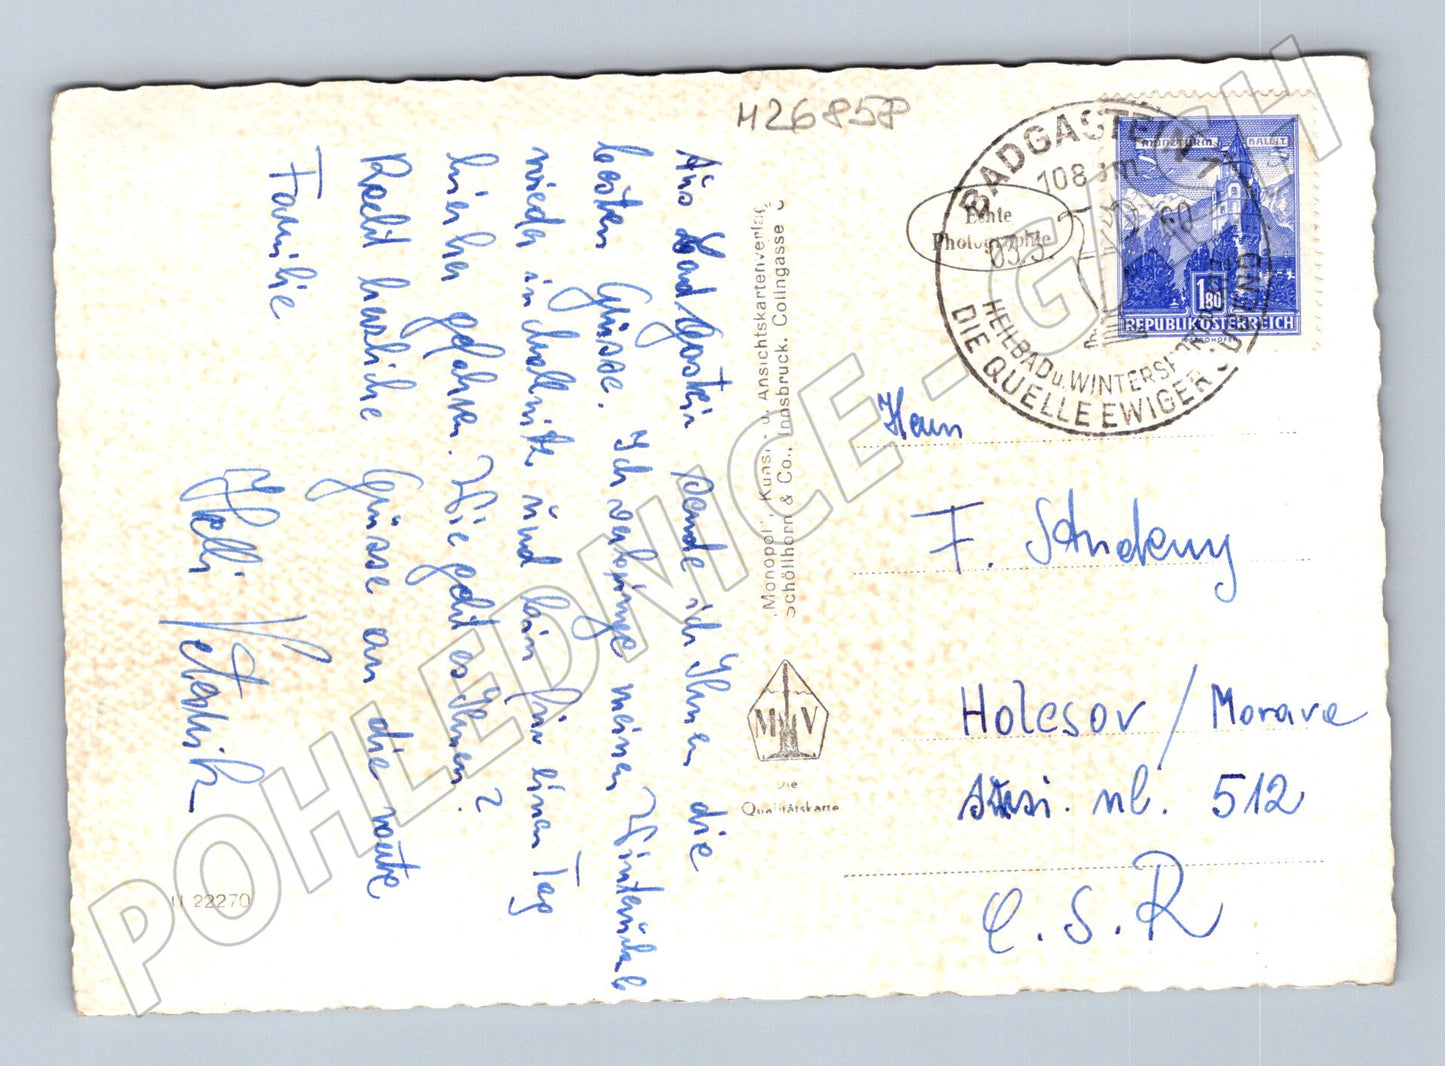 H26858
Aus Badgastein sende ich Ihnen die
besten Grüsse. Ich verbringe meinen Winterurlaub
wieder in Mallnitz und bin für einen Tag
hierher gefahren. Wie geht es Ihnen?
Recht herzliche Grüsse an die werte
Familie
Helli
H 22270
„Monopol", Kunst- u. Ansichtskartenverlag
Schöllhorn & Co., Innsbruck, Colingasse
M V
Die
Qualitätskarte
Echte
Photographie
BADGASTEIN 1
1083 m
03.3. 60
HEILBAD u. WINTERSPORTPLATZ
DIE QUELLE EWIGER JUGEND
MÜNZTURM HALL i.T.
1.80
REPUBLIK ÖSTERREICH
Herrn
F.
Holesov / Morava
512
C.S.R
POHLEDNICE-GECH